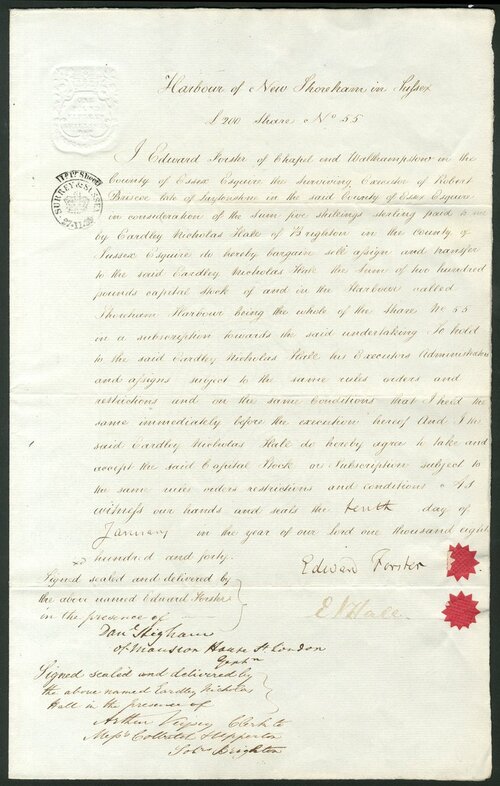 Harbour of New Shoreham in Sussex
£200 Share No 55
1st Sheet
SURREY & SUSSEX
I Edward Forster of Chapel end Walthampstow in the
County of Essex Esquire the Surviving Executor of Robert
Briscoe late of Laytonstone in the said County of Essex Esquire
in consideration of the Sum five shillings sterling paid to me
by Eardley Nicholas Hall of Brighton in the county of
Sussex Esquire do hereby bargain sell assign and transfer
to the said Eardley Nicholas Hall the Sum of two hundred
pounds capital stock of and in the Harbour called
Shoreham Harbour being the whole of the Share No 55
in a subscription towards the said undertaking To hold
to the said Eardley Nicholas Hall his Executors Administrators
and assigns subject to the same rules orders and
restrictions and on the same Conditions that I held the
same immediately before the execution hereof And I the
said Eardley Nicholas Hall do hereby agree to take and
accept the said Capital Stock or Subscription subject to
the same rules orders restrictions and conditions As
witness our hands and seals the tenth day of
January in the year of our lord one thousand eight
hundred and forty.
Edward Forster
Signed sealed and delivered by
the above named Edward Forster
in the presence of
E N Hall
Danl Higham
of Mansion House St London
Signed sealed and delivered by
the above named Eardley Nicholas
Hall in the presence of
Arthur Veysey Clerk to
Messrs
Solrs Brighton